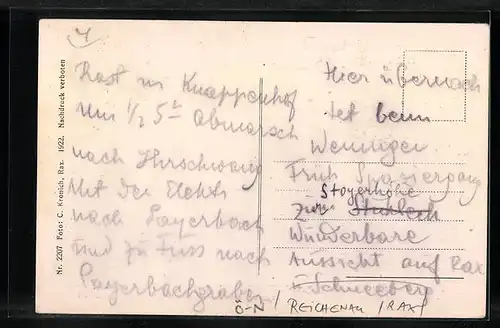 4
Nr. 2207 Foto: C. Kronich, Rax. 1922. Nachdruck verboten
Rast im Knappenhof
Um 1/2 5 h Abmarsch
nach Hirschwang
Mit der Elektr.
nach Payerbach
und zu Fuss nach
Payerbachgraben
Hier übernach
tet beim
Weninger
Früh Spaziergang
Stoyerhöhe
zur
Wunderbare
Aussicht auf Rax
u Schneeberg
Ö-N / REICHENAU / RAX